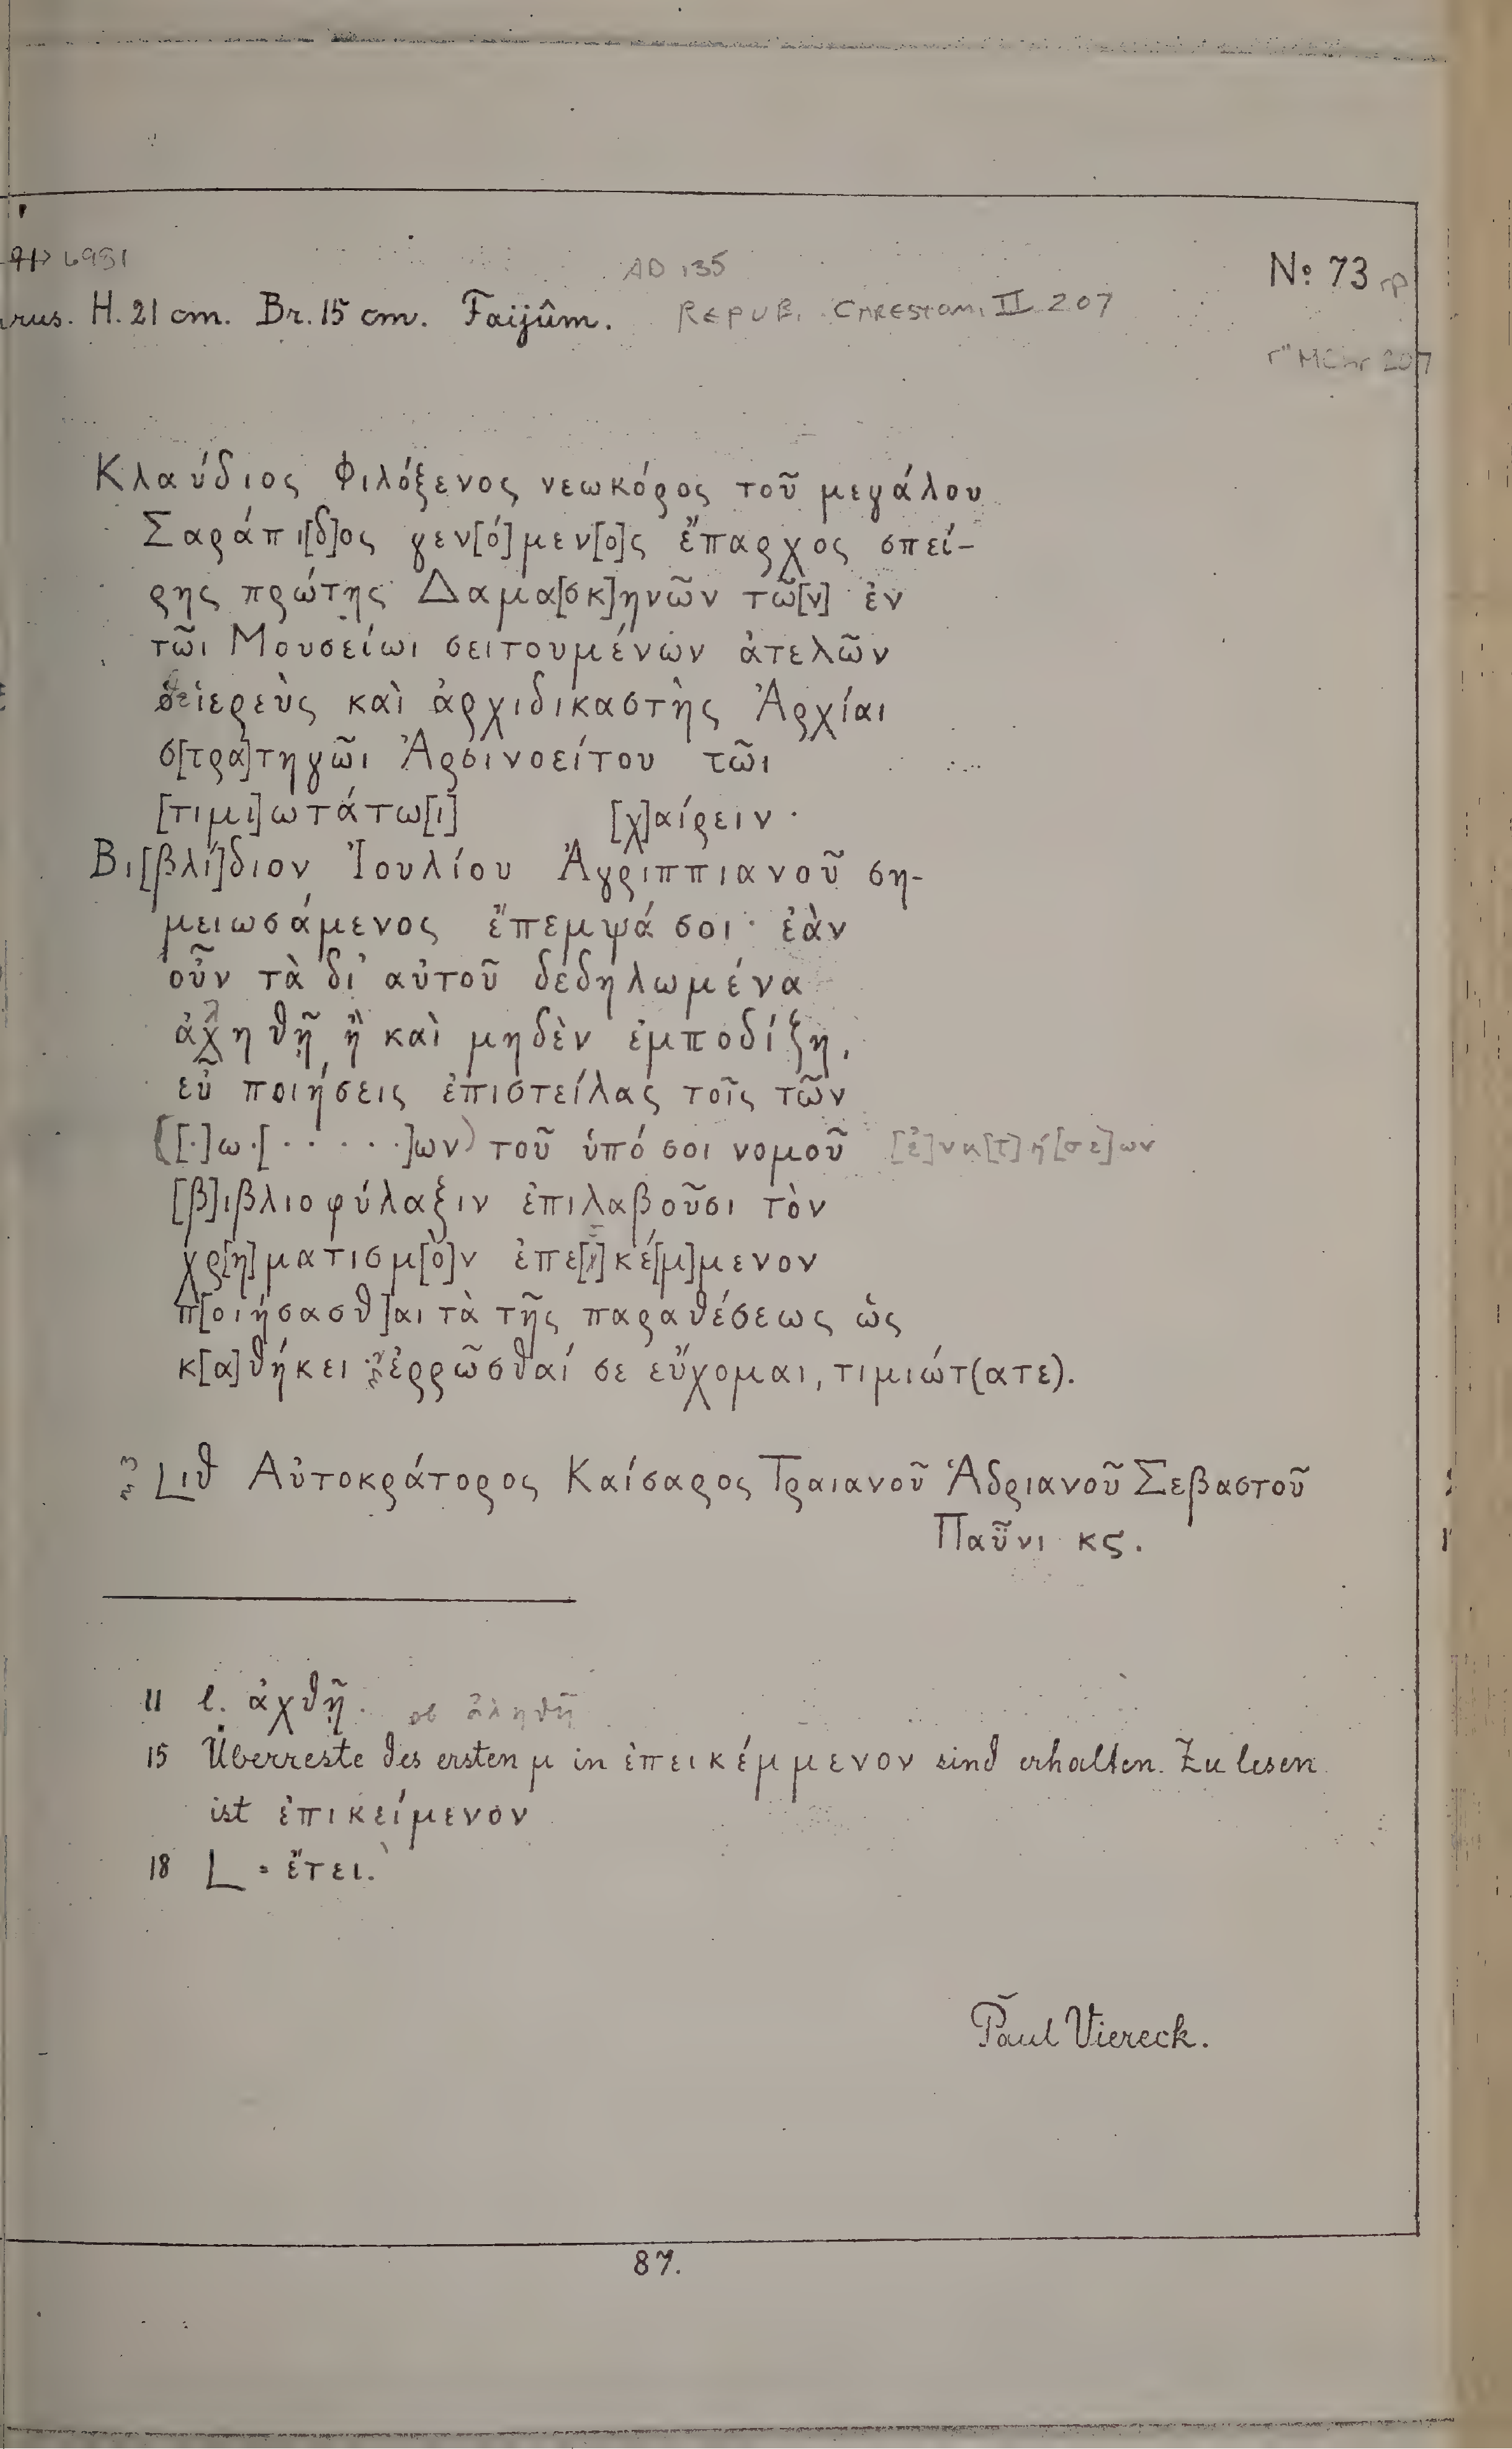 6981
AD 135
No 73
rus. H. 21 cm. Br. 15 cm. Faijûm.
REPUB. CHRESTOM. II 207
MChr 207
Κλαύδιος Φιλόξενος νεωκόρος τοῦ μεγάλου
Σαράπι[δ]ος γεν[ό]μεν[ο]ς ἔπαρχος σπεί-
ρης πρώτης Δαμα[σκ]ηνῶν τῶ[ν] ἐν
τῶι Μουσείωι σειτουμένων ἀτελῶν
ἱερεὺς καὶ ἀρχιδικαστὴς Ἀρχίαι
σ[τρα]τηγῶι Ἀρσινοείτου τῶι
[τιμι]ωτάτω[ι] [χ]αίρειν ·
Βι[βλί]διον Ἰουλίου Ἀγριππιανοῦ ση-
μειωσάμενος ἔπεμψά σοι · ἐὰν
οὖν τὰ δι' αὐτοῦ δεδηλωμένα
ἀχηθῇ ἢ καὶ μηδὲν ἐμποδίζη,
εὖ ποιήσεις ἐπιστείλας τοῖς τῶν
([·]ω·[· · · · ·]ων) τοῦ ὑπό σοι νομοῦ [ἐ]νκ[τ]ή[σε]ων
[β]ιβλιοφύλαξιν ἐπιλαβοῦσι τὸν
χρ[η]ματισμ[ὸ]ν ἐπε[ι]κέ[μ]μενον
π[οιήσασθ]αι τὰ τῆς παραθέσεως ὡς
κ[α]θήκει ἐρρῶσθαί σε εὔχομαι, τιμιώτ(ατε).
Lιθ Αὐτοκράτορος Καίσαρος Τραιανοῦ Ἁδριανοῦ Σεβαστοῦ
Παῦνι κς.
11 l. ἀχθῇ. ἀληθῆ
15 Überreste des ersten μ in ἐπεικέμμενον sind erhalten. Zu lesen
ist ἐπικείμενον
18 L = ἔτει.
Paul Viereck.
87.